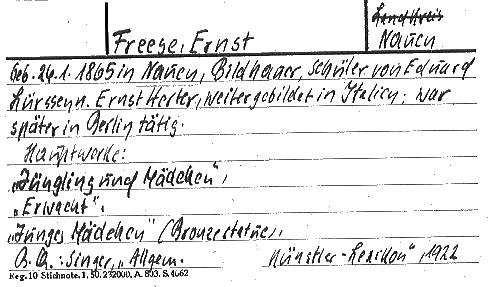 Landkreis
Freese, Ernst Nauen
Geb. 24.1.1865 in Nauen, Bildhauer, Schüler von Eduard
Lürssen u. Ernst Herter, weitergebildet in Italien; war
später in Berlin tätig.
Hauptwerke:
„Jüngling und Mädchen",
„Erwacht".
„Junges Mädchen" (Bronzestatue).
B. Q.: Singer, „Allgem. Künstler-Lexikon", 1922
Reg. 10 Stichnote. 1, 50. 232000. A. 803. S. 4662